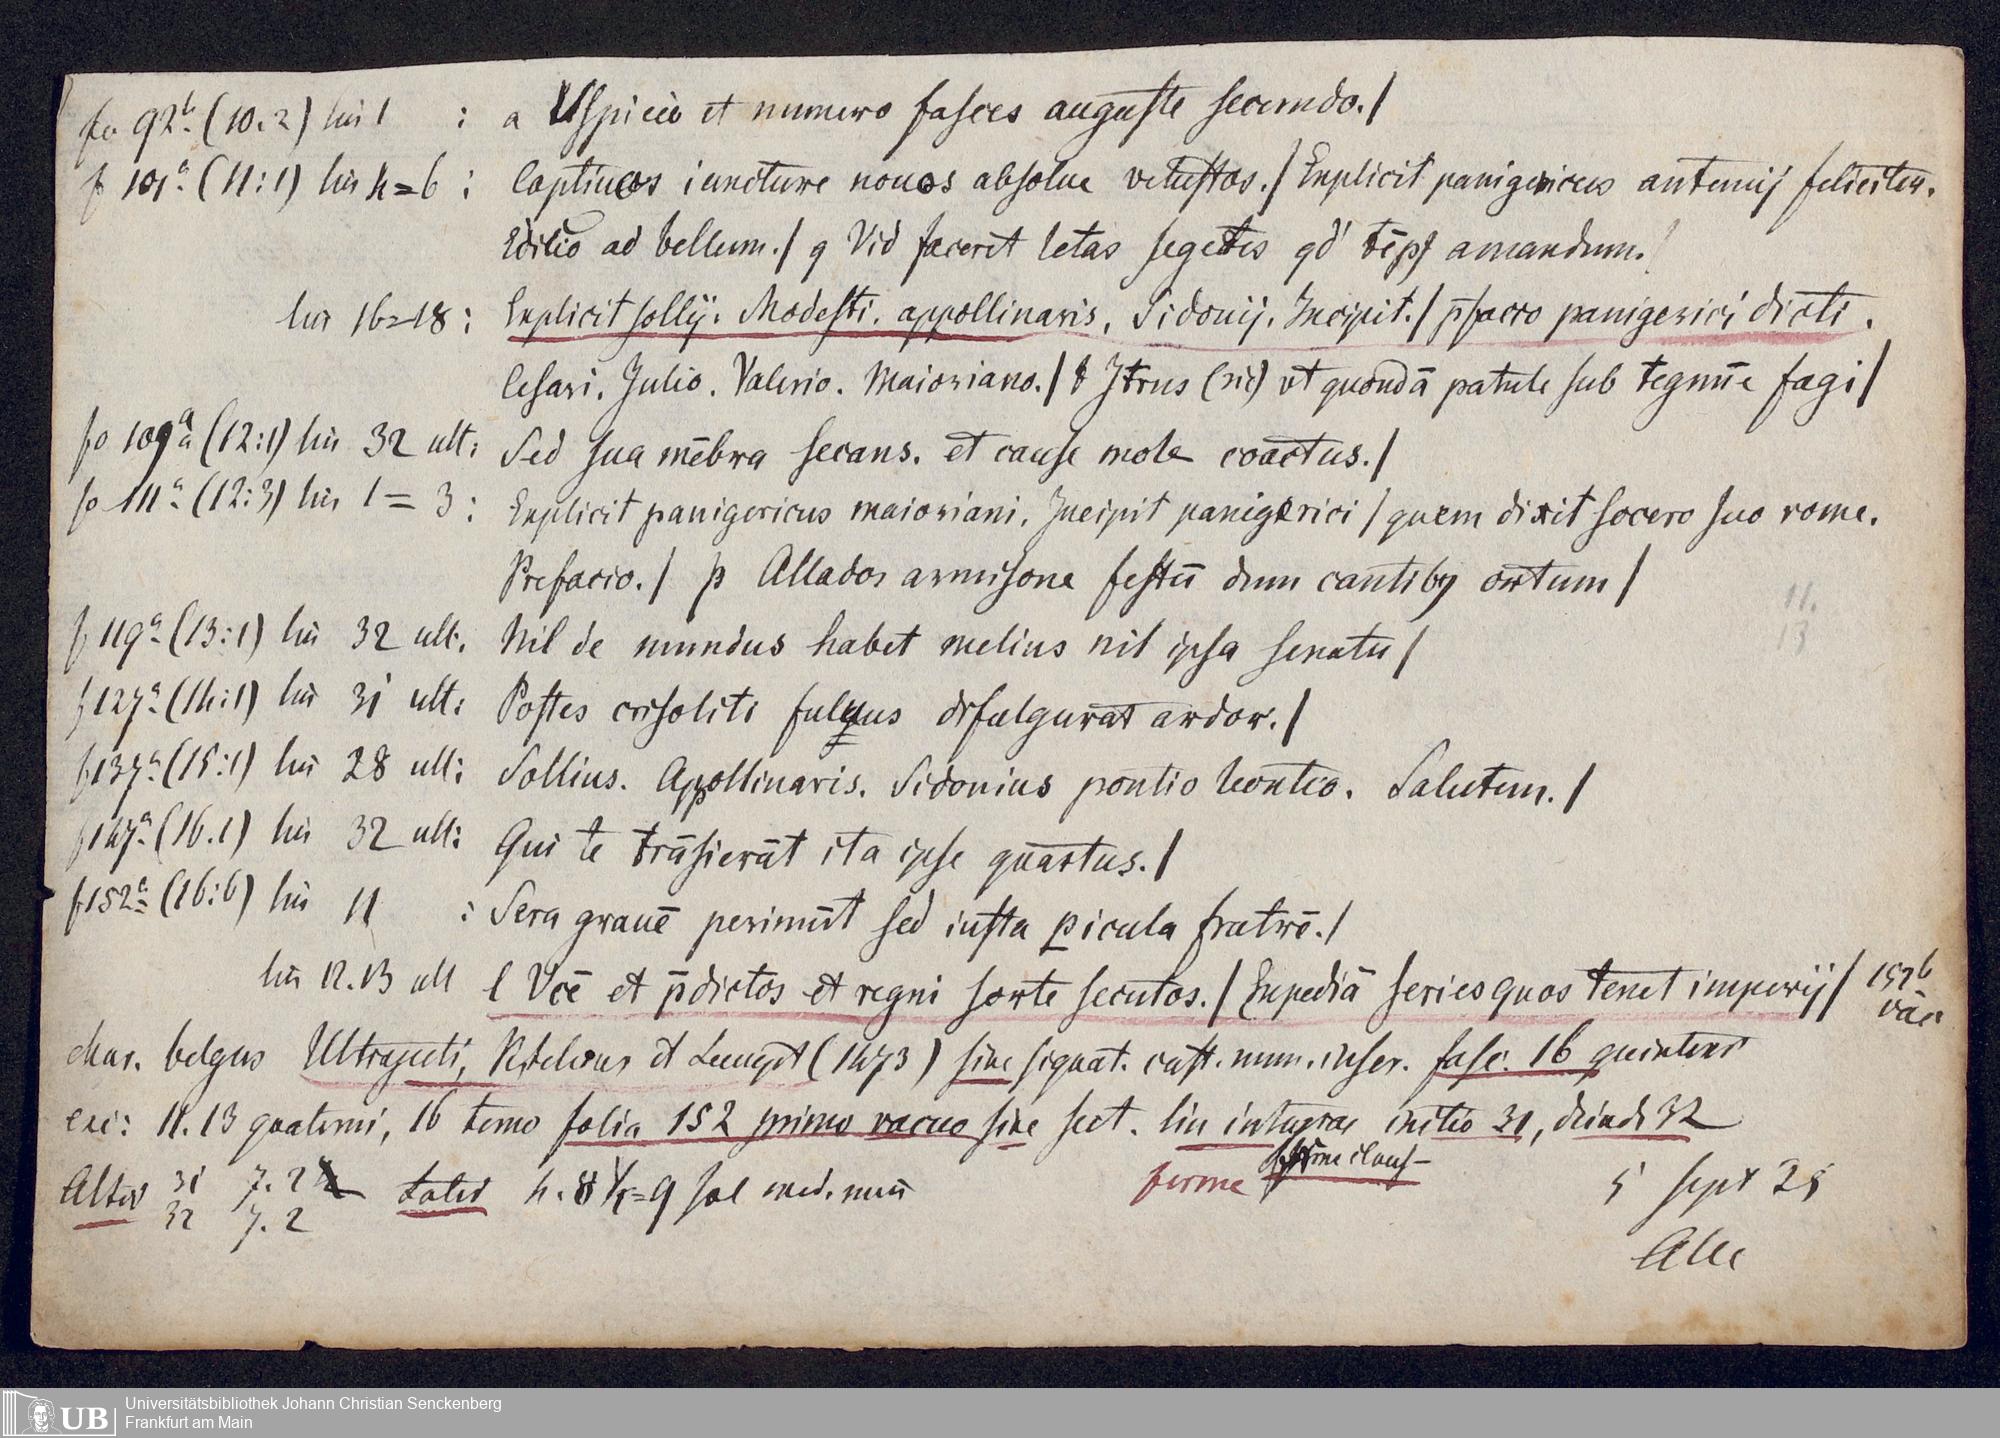 fo 92b. (10.2) lin 1 : a USpicio et numero fasces auguste secundo./
f 101a. (11:1) lin 4=6 : Captiuos iuncture nouos absolue vetustos./ Explicit panigericus antemij feliciter.
Edicio ad bellum./ q Vid faceret letas segetes qd' tēpꝫ amandum./
lin 16=18 : Explicit sollij. Modesti. appollinaris. Sidonij. Incipit./ p̄facio panigerici dicti.
Cesari. Julio. Valerio. Maioriano./ t Jtrus (sic) vt quondā patule sub tegmīe fagi/
fo 109a (12:1) lin 32 ult: Sed sua mēbra secans. et cause mole coactus./
fo 111a. (12:3) lin 1=3 : Explicit panigericus maioriani. Incipit panigerici/ quem dixit socero suo rome.
Prefacio./ p Allados armisone festū dum cantibꝫ ortum/
f 119a. (13:1) lin 32 ult. Nil de mundus habet melius nil ipsa senatu/
f 127a. (14:1) lin 31 ult: Postes crisoliti fuluus difulgurat ardor./
f 137a. (15:1) lin 28 ult: Sollius. Appollinaris. Sidonius pontio leontio. Salutem./
f 147a. (16.1) lin 32 ult: Qui te trāsierāt ita ipse quartus./
f 152a. (16:6) lin 11 : Sera grauē perimūt sed iusta ꝑicula fratrē./
lin 12.13 ult l Vcē et p̄dictos et regni sorte secutos./ Expediā series quos tenet imperij/ 152b vac
char. belgus Ultrajecti, Ketelaer et Leempt (1473) sine signat. cust. num. inser. fasc. 16 quinterni
exc: 11.13 quaterni, 16 terno folia 152 primo vacuo sine sect. lin integrae initio 31, deinde 32
Alter 31 7.2 later 4. 8 1/2=9 sal med. min ferme
32 7.2
5 sept 25